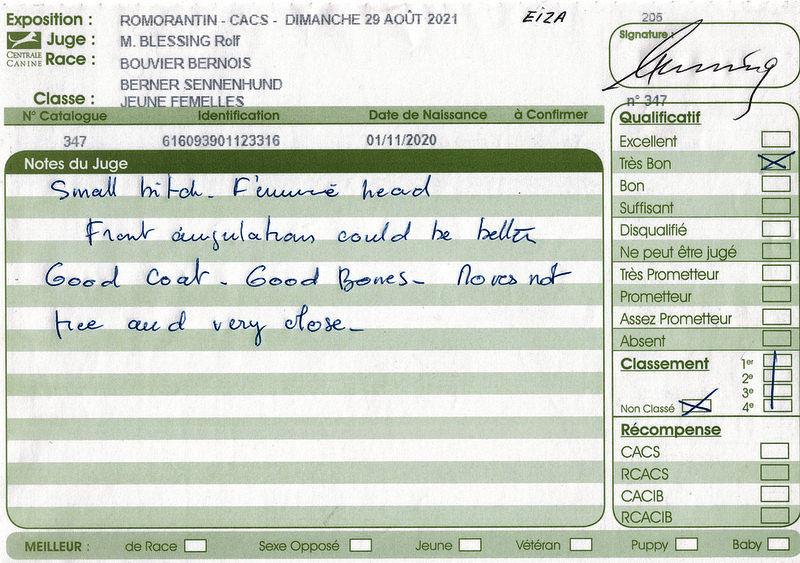 Exposition : ROMORANTIN - CACS - DIMANCHE 29 AOÛT 2021 EIZA 205
CENTRALE CANINE
Juge : M. BLESSING Rolf
Signature :
Race : BOUVIER BERNOIS
BERNER SENNENHUND
Classe : JEUNE FEMELLES
n° 347
N° Catalogue Identification Date de Naissance à Confirmer
347 616093901123316 01/11/2020
Notes du Juge
Small bitch - head
Front angulations could be better
Good Coat - Good Bones - Moves not
free and very close -
Qualificatif
Excellent
Très Bon
Bon
Suffisant
Disqualifié
Ne peut être jugé
Très Prometteur
Prometteur
Assez Prometteur
Absent
Classement 1er
2e
3e
Non Classé 4e
Récompense
CACS
RCACS
CACIB
RCACIB
MEILLEUR : de Race Sexe Opposé Jeune Vétéran Puppy Baby